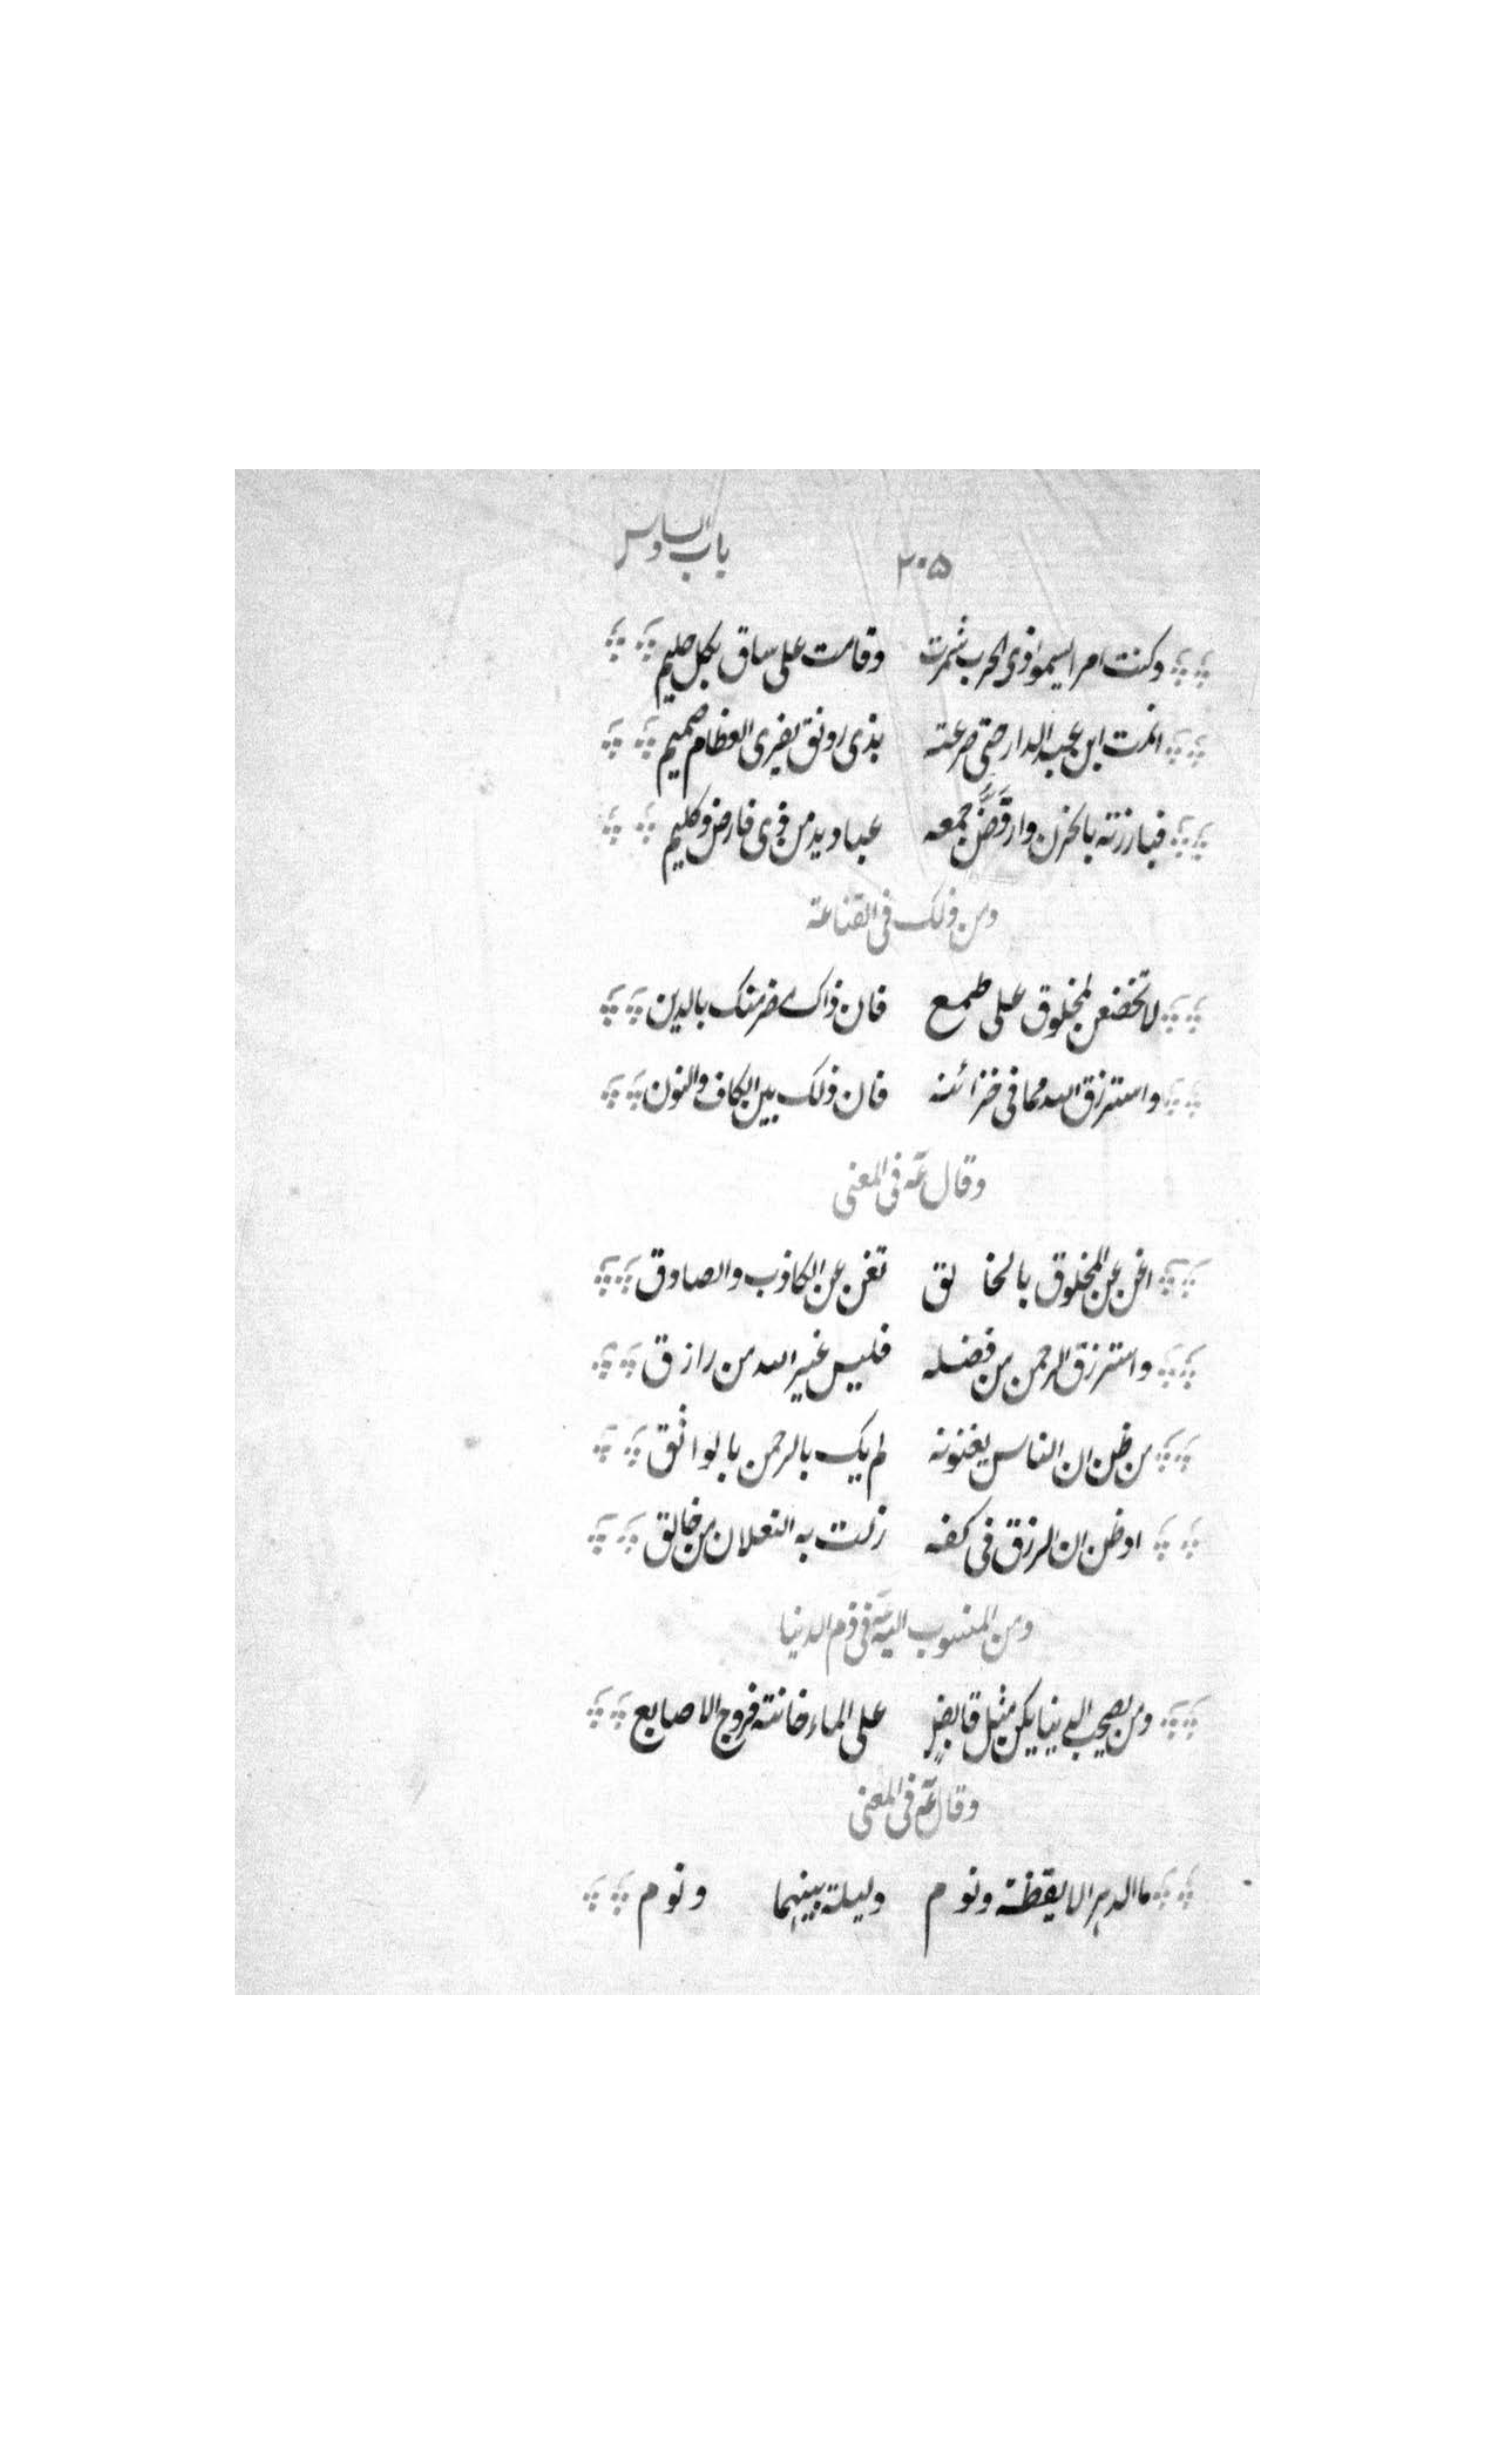 ۲۰۵ باب السادس
وكنت امرا يسمو اذى الحرب شمرت وقامت على ساق بكل مليم
اممت ابن عبد الدار حتى صرعته بذى رونق يفرى العظام صميم
فبارزته بالحزن وارفض جمعه عباديد من ذى فارض وكليم
ومن ذلك فى القناعة
لا تخضعن لمخلوق على طمع فان ذاك مضر منك بالدين
واسترزق الله مما فى خزائنه فان ذلك بين الكاف والنون
وقال عه فى المعنى
اغن عن المخلوق بالخالق تغن عن الكاذب والصادق
واسترزق الرحمن من فضله فليس غير الله من رازق
من ظن ان الناس يغنونه لم يك بالرحمن بالواثق
او ظن ان الرزق فى كفه زلت به النعلان من خالق
ومن المنسوب اليه عه فى ذم الدنيا
ومن يصحب الدنيا يكن مثل قابض على الماء خانته فروج الاصابع
وقال عه فى المعنى
ما الدهر الا يقظة ونوم وليلة بينهما ونوم